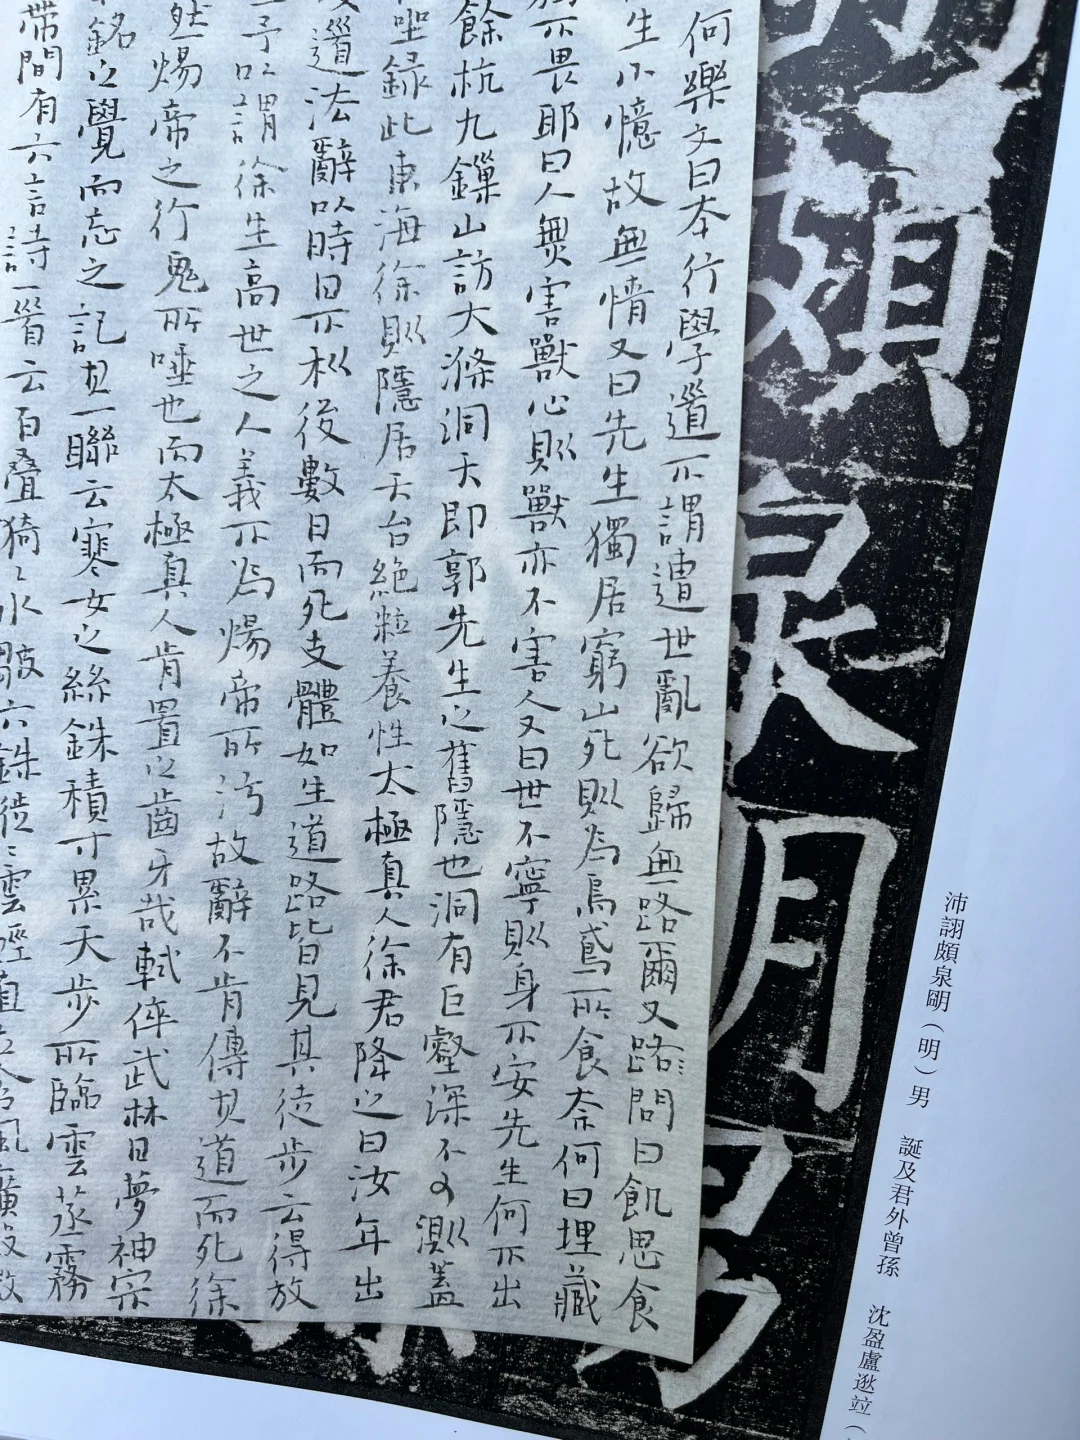 何樂文曰本行學道不謂遭世亂欲歸無路爾又路問曰飢思食
生不憶故無情又曰先生獨居窮山死則為烏鳶所食奈何曰埋藏
不畏耶曰人無害獸心則獸亦不害人又曰世不寧則身不安先生何不出
餘杭九鏁山訪大滌洞天即郭先生之舊隱也洞有巨壑深不可測蓋
錄此東海徐則隱居天台絕粒養性太極真人徐君降之曰汝年出
道法辭以時日不利後數日而死支體如生道路皆見其徒步云得放
予以謂徐生高世之人義不為煬帝所污故辭不肯傳其道而死徐
然煬帝之行鬼所唾也而太極真人肯置之齒牙哉軾倅武林日夢神宗
銘之覺而忘之記其一聯云寒女之絲銖積寸累天步所臨雲蒸霧
帶間有六言詩一首云百疊猗猗水皺六銖徙徙雲輕
頻
泉
明
男
沛詡頗泉朙（明）男 誕及君外曾孫 沈盈盧逖竝（